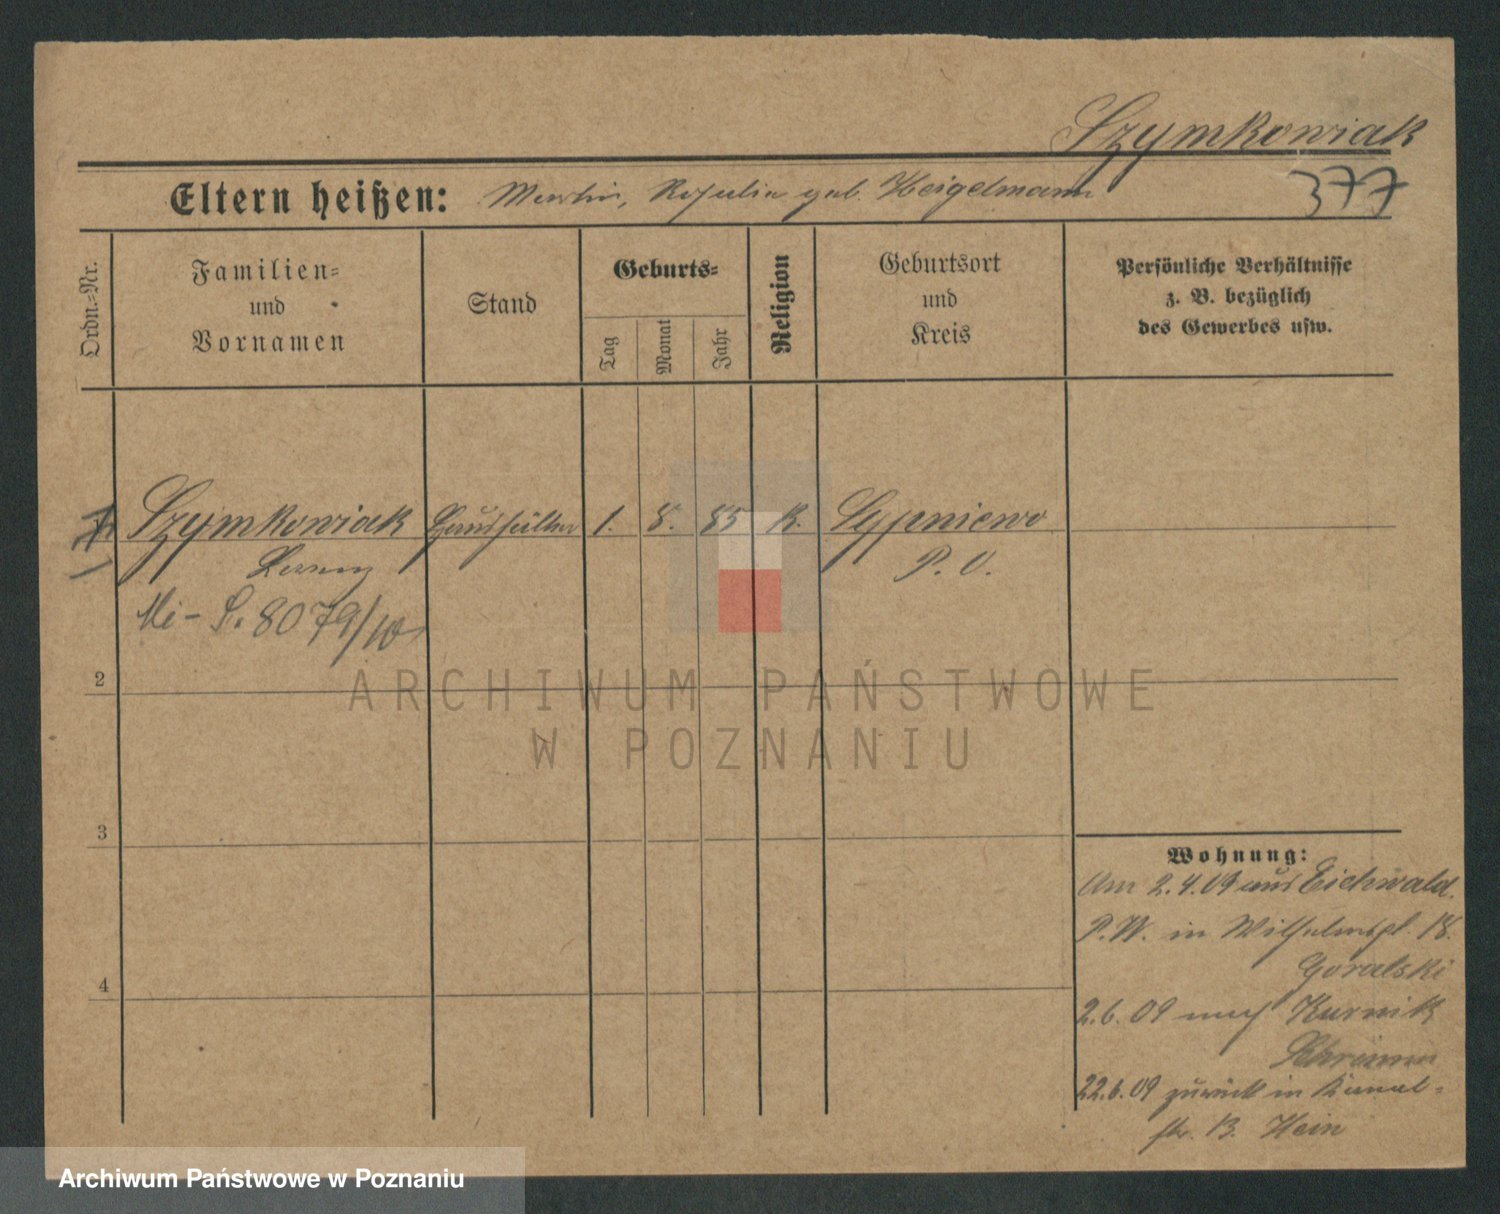 Szymkowiak
377
Eltern heißen: Martin, Rosalia geb. Heigelmann
Ordn.-Nr.
Familien-
und
Vornamen
Stand
Geburts-
Tag
Monat
Jahr
Religion
Geburtsort
und
Kreis
Persönliche Verhältnisse
z. B. bezüglich
des Gewerbes usw.
Szymkowiak Haushälter 1. 8. 85 K. Sypniewo
Lorenz P. O.
Mi - S. 8079/10
2
ARCHIWUM PAŃSTWOWE
W POZNANIU
3
4
Wohnung:
Am 2.4.09 aus Eichwald
P.W. in Wilhelmspl. 18.
Goralski
2.6.09 nach Kurnik
Schrimm
22.6.09 zurück in Kanal-
str. 13. Hein
Archiwum Państwowe w Poznaniu